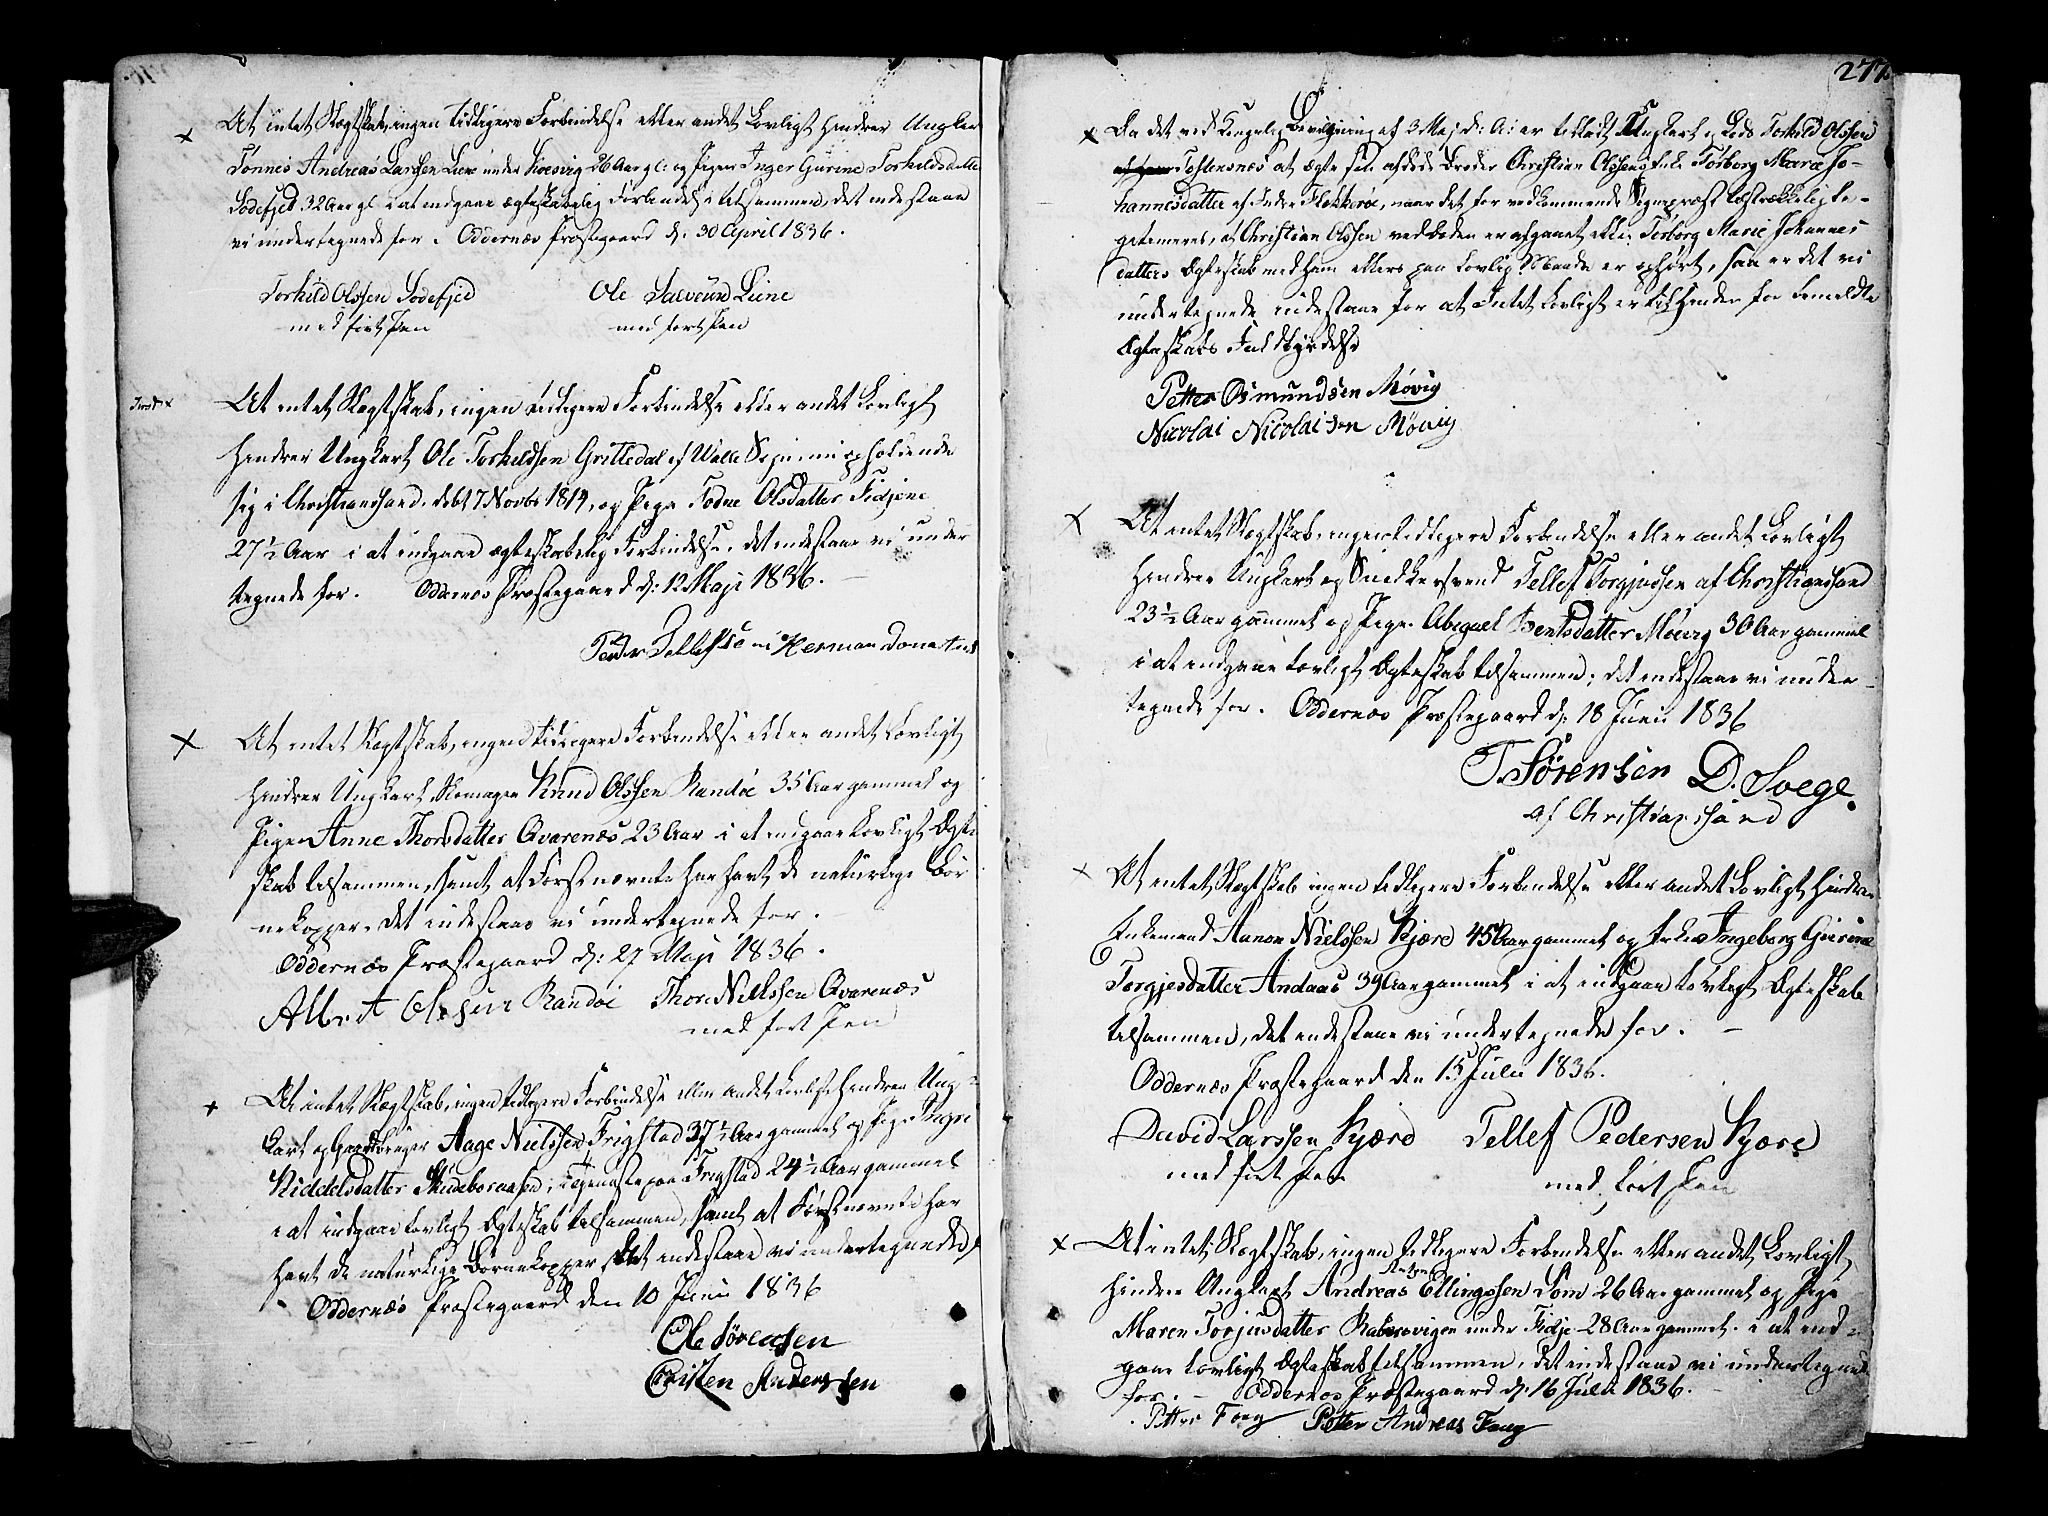 At intet Slægtskab, ingen tidligere Forbindelse eller andet Lovligt hindrer Ungkar
Tønnes Andreas Larssen Liene under Kosvig 26 Aar gl: og Pigen Inger Gurine Torkildsdatter
Sødefjed 32 Aar gl. i at indgaae ægteskabelig Forbindelse tilsammen, det indestaae
vi undertegnede for. Oddernes Præstegaard d: 30 April 1836.
Torkild Olssen Sødefjed Ole Salvesen Liene
med ført Pen med ført Pen
At intet Slægtskab, ingen tidligere Forbindelse eller andet Lovligt
hindrer Ungkarl Ole Torkildsen Grittedal af Walle Sogn, nu opholdende
sig i Christiansand, døbt 7 Novbr 1814, og Pige Todne Olsdatter Fidjene
27½ Aar i at indgaae ægteskabelig Forbindelse, det indestaae vi under
tegnede for. Oddernes Præstegaard d: 12 Maji 1836.
Peder Tellefsen Herman
× At intet Slægtskab, ingen tidligere Forbindelse eller andet Lovligt
hindrer Ungkarl, Skomager Knud Olssen Randøe 35 Aar gammel og
Pigen Anne Thorsdatter Qvarenes 23 Aar i at indgaae Lovligt Ægte
skab tilsammen, samt at Førstnævnte har havt de naturlige Bør
nekopper, det indestaae vi undertegnede for.
Oddernes Præstegaard d: 27 Maji 1836.
Albret Olssen Randøe Thore Nielssen Qvarenæs
med ført Pen
At intet Slægtskab, ingen tidligere Forbindelse eller andet Lovligt hindrer Ung-
karl og Gaardbruger Aage Nielssen Frigstad 37½ Aar gammel og Pige Inger
Kiddelsdatter tjeneste paa Frigstad 24½ Aar gammel
i at indgaae Lovligt Ægteskab tilsammen, samt at Førstnævnte har
havt de naturlige Børnekopper, det indestaae vi undertegnede for
Oddernes Præstegaard den 10 Juni 1836
Ole Sørensen
Cristen Anderssen
277.
× Da det ved Kongelig Bevilgning af 3 Maj d: A: er tilladt Ungkarl og Lods Torkild Olssen
at ægte sin afdøde Broder Christian Olssens Enke Tørborg Marie Jo-
hannesdatter af Indre Flekkerøe, naar det for vedkommende Sognepræst tilstrækkelig be-
, at Christian Olssen ved Døden er afgaaet eller Tørborg Marie Johannes
datters Ægteskab med ham ellers paa Lovlig Maade er ophørt, saa er det vi
undertegnede indestaae for at Intet Lovligt er til Hinder for bemeldte
Ægteskabs Fuldbyrdelse
Petter Osmundsen Møvig
Nicolai Nicolaisen Møvig
× At intet Slægtskab, ingen tidligere Forbindelse eller andet Lovligt
hindrer Ungkarl og Snedkersvend Tellef Torgjussen af Christiansand
23½ Aar gammel og Pige Abigael Bentsdatter Møvig 30 Aar gammel
i at indgaae Lovligt Ægteskab tilsammen; det indestaae vi under
tegnede for. Oddernes Præstegaard d: 18 Juni 1836
T. Sørensen D. Svege.
af Christiansand
× At intet Slægtskab ingen tidligere Forbindelse eller andet Lovligt hindrer
Enkemand Aanon Nielssen Kjære 45 Aar gammel og Enke Ingeborg Gurine
Torgjesdatter Andaas 39 Aar gammel i at indgaae Lovligt Ægteskab
tilsammen, det indestaae vi undertegnede for.
Oddernes Præstegaard den 15 Juli 1836.
David Larssen Kjære Tellef Pedersen Kjære
med ført Pen med ført Pen
× At intet Slægtskab, ingen tidligere Forbindelse eller andet Lovligt
hindrer Ungkarl Andreas Ellingssen Søm 26 Aar gammel og Pige
Maren Torjusdatter under Fidje 28 Aar gammel i at ind-
gaae Lovligt Ægteskab tilsammen, det indestaae vi undertegnede
for. Oddernes Præstegaard d: 16 Juli 1836.
Petter Foeg Petter Andreas Foeg